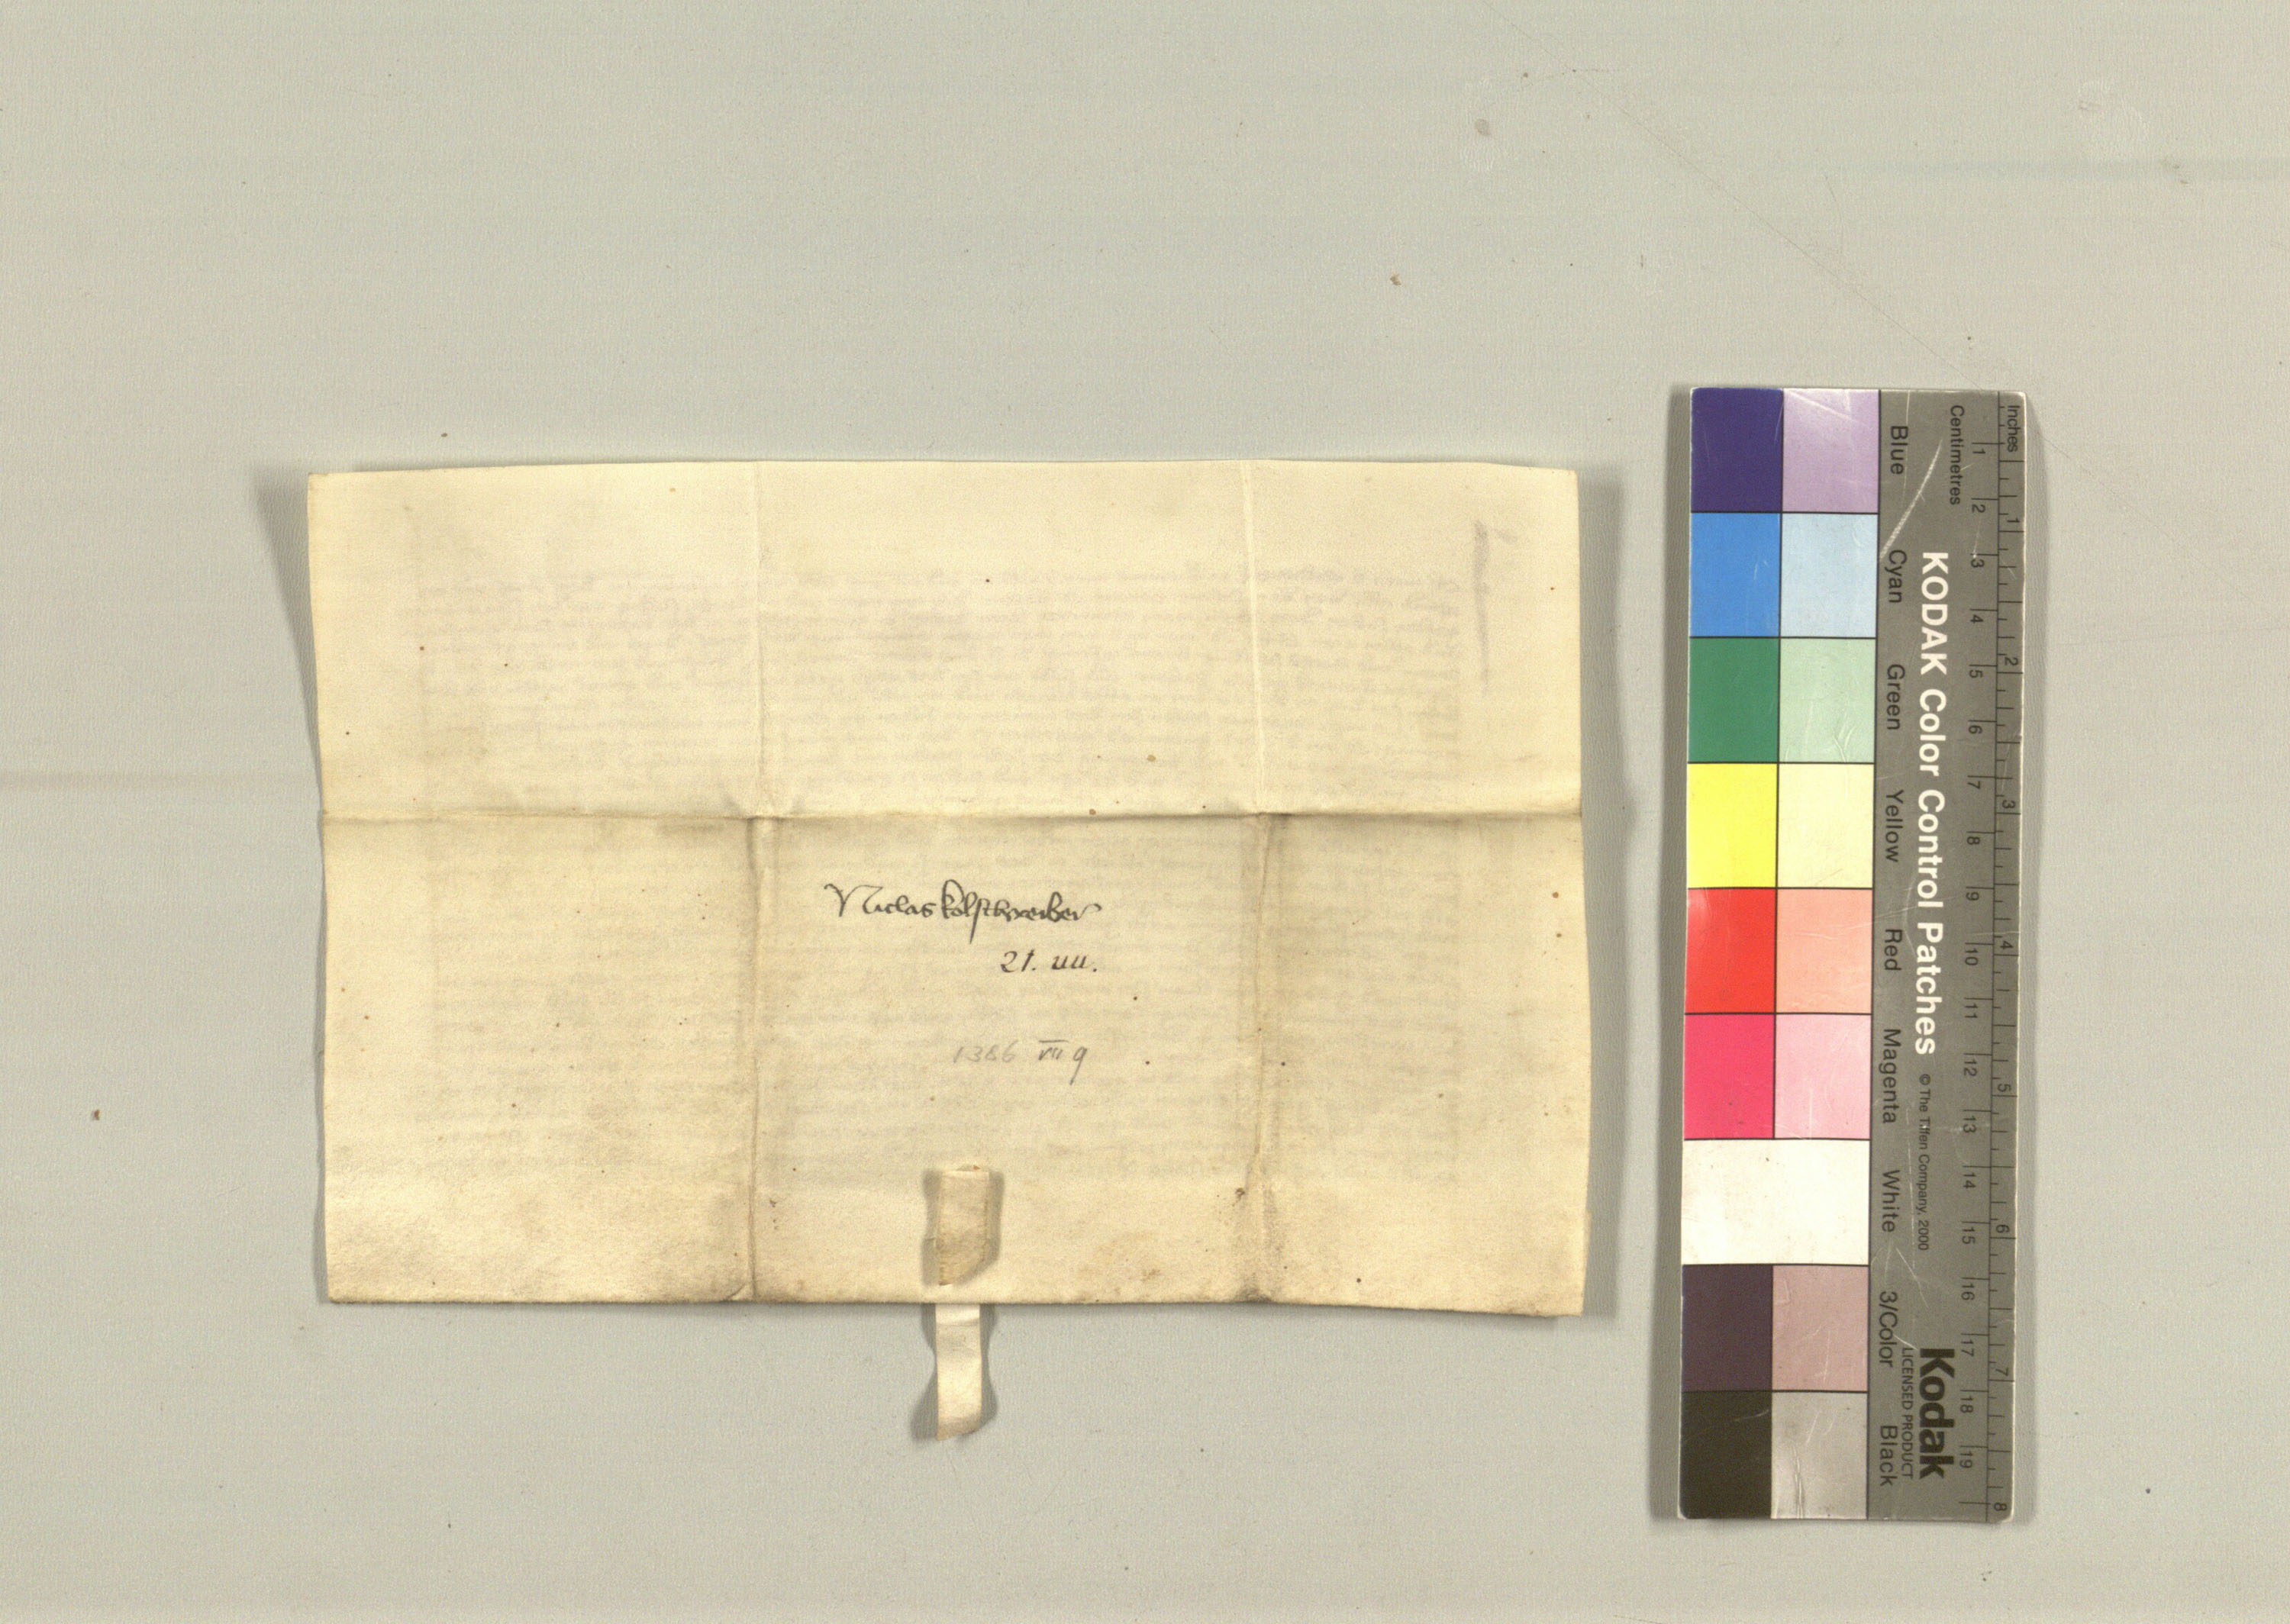 Niclas kolschreiber
21. uu.
1386 VII 9
Inches
Centimetres
1 2 3 4 5 6 7 8
1 2 3 4 5 6 7 8 9 10 11 12 13 14 15 16 17 18 19
KODAK Color Control Patches © The Tiffen Company, 2000 Kodak
LICENSED PRODUCT
Blue Cyan Green Yellow Red Magenta White 3/Color Black